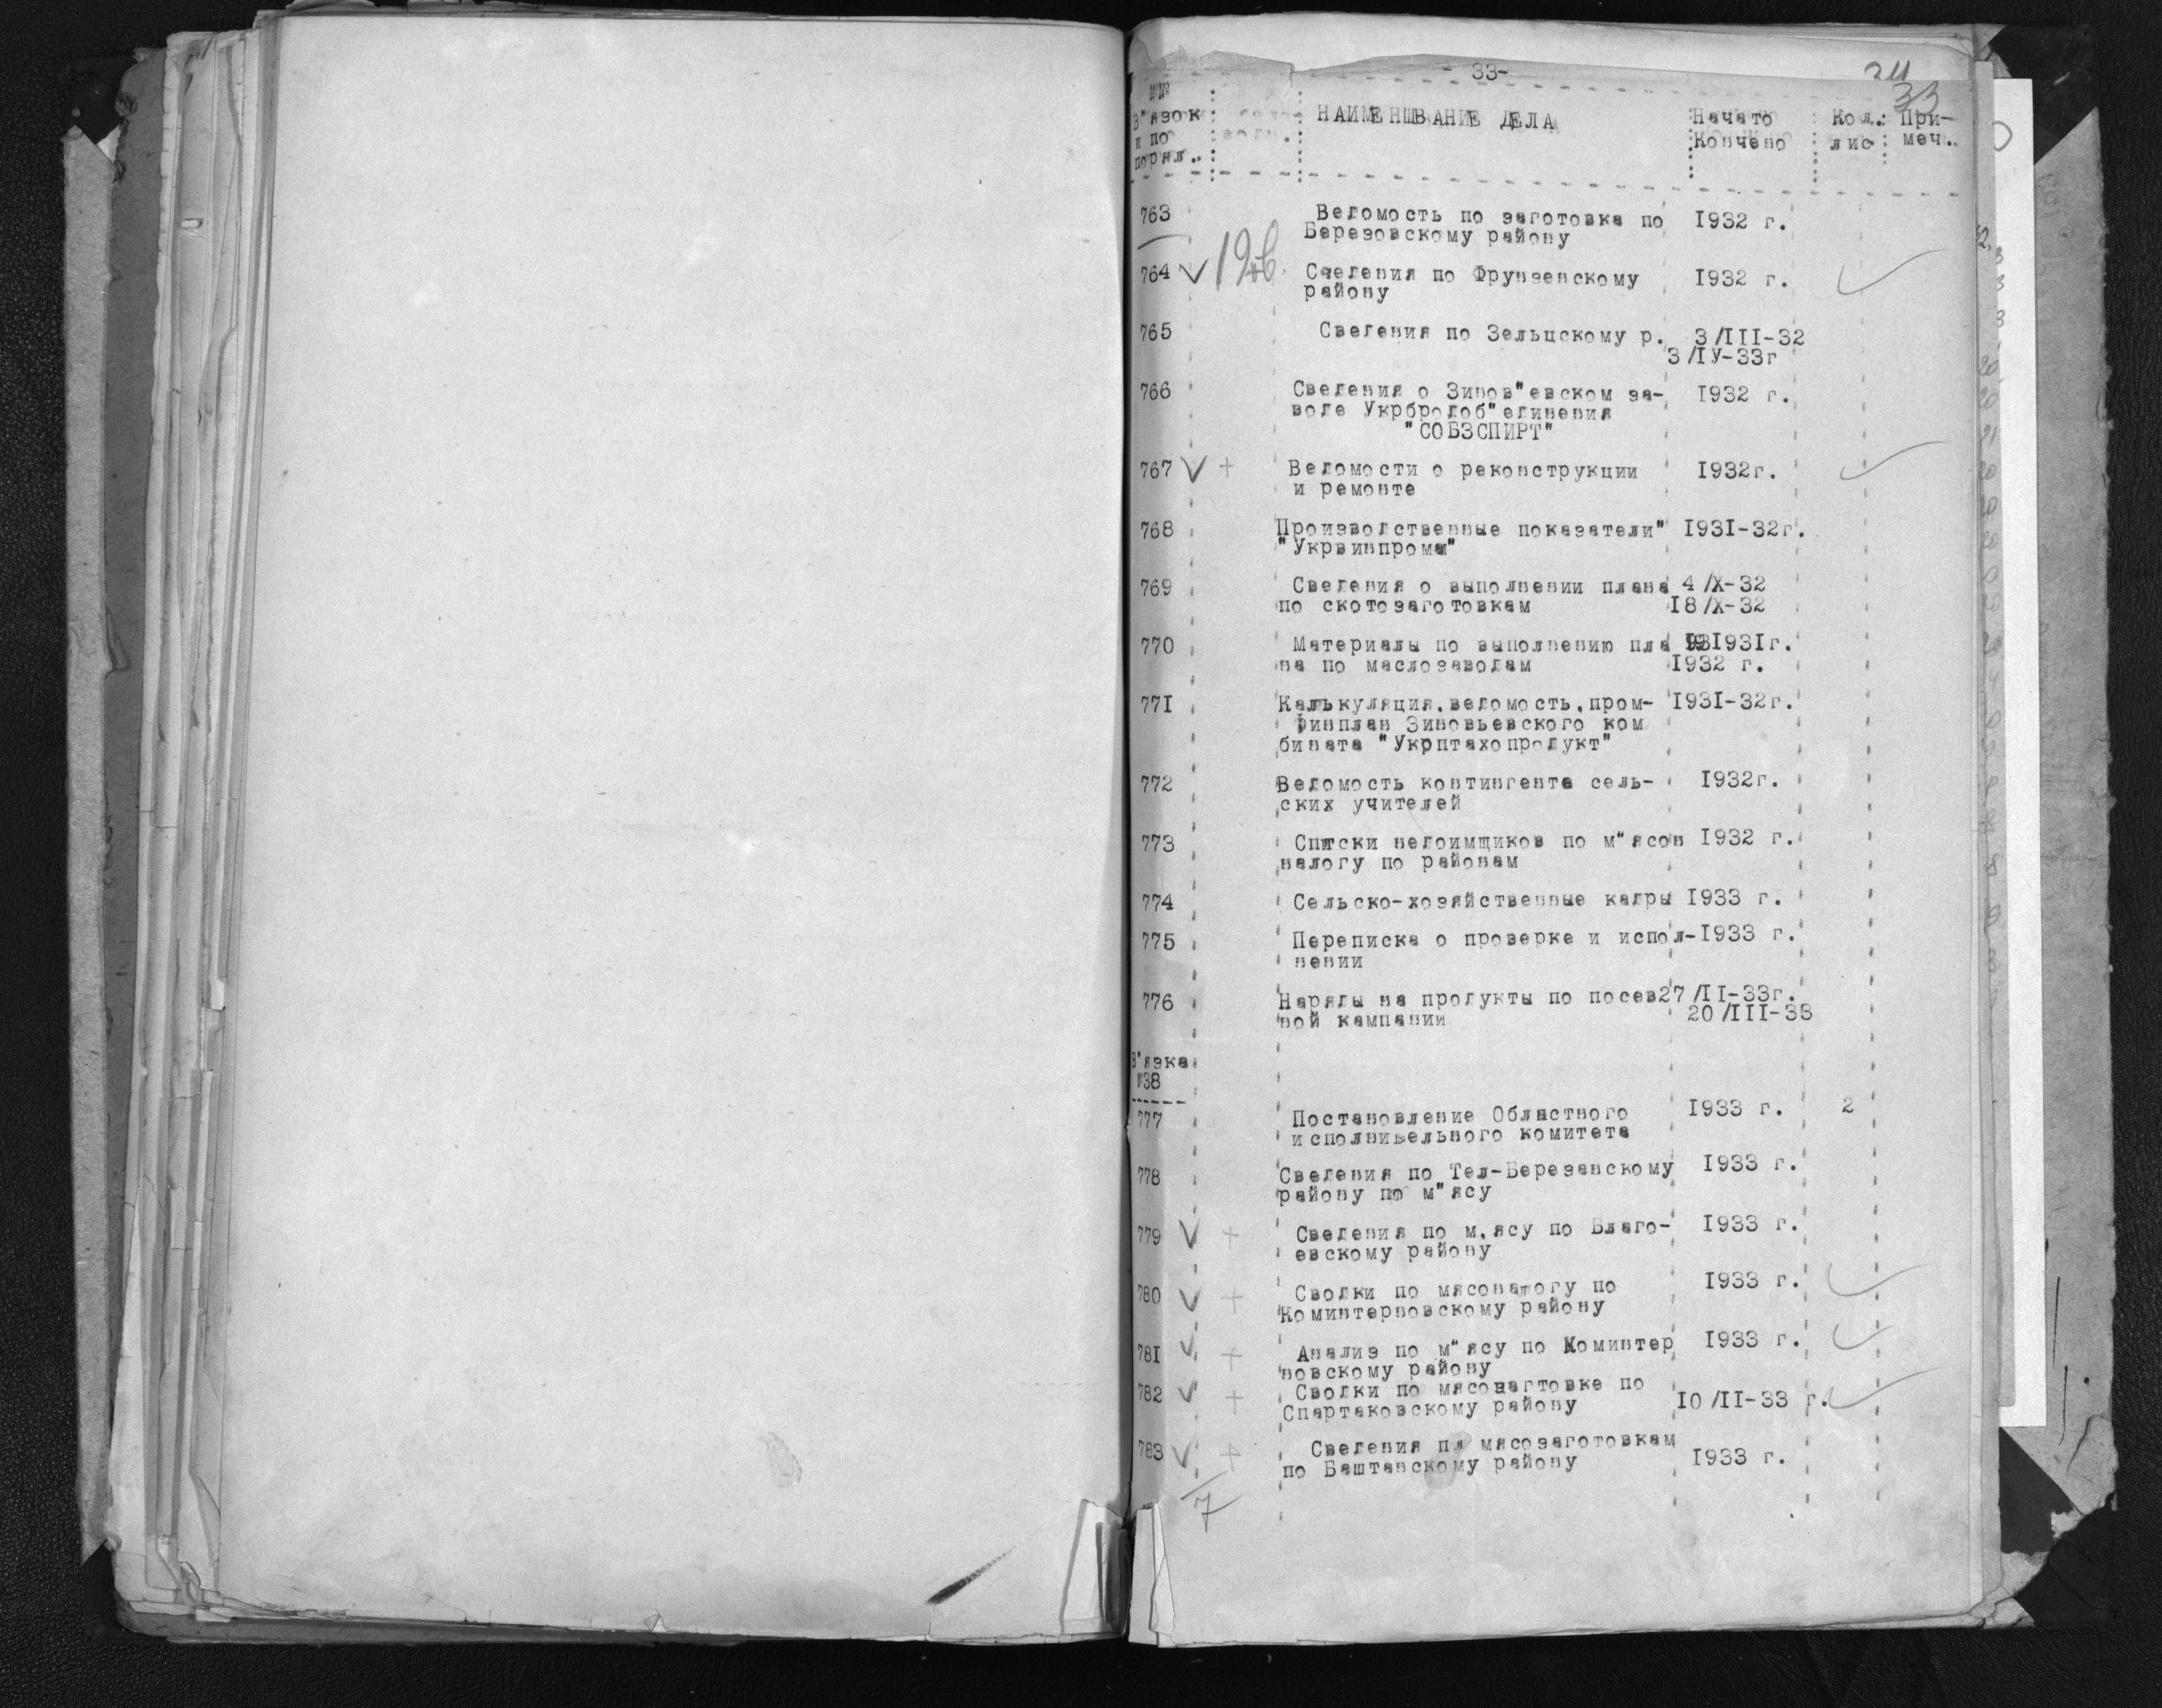 33-
34
33
№№
В"язок
и по
поряд.
НАИМЕНШВАНИЕ ДЕЛА
Начато
Кончено
Кол.
лис
При-
меч.
763 Ведомость по заготовка по 1932 г.
Березовскому району
764 Сведения по Фрунзенскому 1932 г.
району
765 Сведения по Зельцскому р. 3/III-32
3/IУ-33г
766 Сведения о Зинов"евском за- 1932 г.
воде Укрбродоб"единения
"СОБЗСПИРТ"
767 + Ведомости о реконструкции 1932г.
и ремонте
768 Производственные показатели" 1931-32г.
"Укрвинпрома"
769 Сведения о выполнении плана 4/X-32
по скотозаготовкам 18/X-32
770 Материалы по выполнению пла 1931г.
на по маслозаводам 1932 г.
771 Калькуляция,ведомость,пром- 1931-32г.
финплан Зиновьевского ком
бината "Укрптахопродукт"
772 Ведомость контингента сель- 1932г.
ских учителей
773 Списки недоимщиков по м"ясон 1932 г.
налогу по районам
774 Сельско-хозяйственные кадры 1933 г.
775 Переписка о проверке и испол- 1933 г.
нении
776 Наряды на продукты по посев 27/II-33г.
ной кампании 20/III-33
В"язка
№38
777 Постановление Областного 1933 г. 2
исполнивельного комитета
778 Сведения по Тел-Березанскому 1933 г.
району по м"ясу
779 + Сведения по м,ясу по Благо- 1933 г.
евскому району
780 + Сводки по мясоналогу по 1933 г.
Коминтерновскому району
781 + Анализ по м"ясу по Коминтер 1933 г.
новскому району
782 + Сводки по мясозагтовке по
Спартаковскому району 10/II-33 г.
783 + Сведения по мясозаготовкам
по Баштанскому району 1933 г.
7